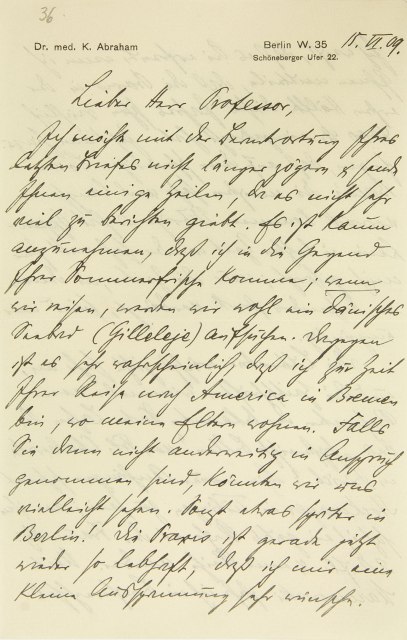 36
Dr. med. K. Abraham
Berlin W. 35 15. VI. 09.
Schöneberger Ufer 22.
Lieber Herr Professor,
Ich möchte mit der Beantwortung Ihres
letzten Briefes nicht länger zögern u. sende
Ihnen einige Zeilen, da es nicht sehr
viel zu berichten giebt. Es ist kaum
anzunehmen, daß ich in die Gegend
Ihrer Sommerfrische komme; wenn
wir reisen, werden wir wohl ein dänisches
Seebad (Gilleleje) aufsuchen. Dagegen
ist es sehr wahrscheinlich, daß ich zur Zeit
Ihrer Reise nach America in Bremen
bin, wo meine Eltern wohnen. Falls
Sie dann nicht anderweitig in Anspruch
genommen sind, könnten wir uns
vielleicht sehen. Sonst etwas später in
Berlin! Die Praxis ist gerade jetzt
wieder so lebhaft, daß ich mir eine
kleine Ausspannung sehr wünsche.